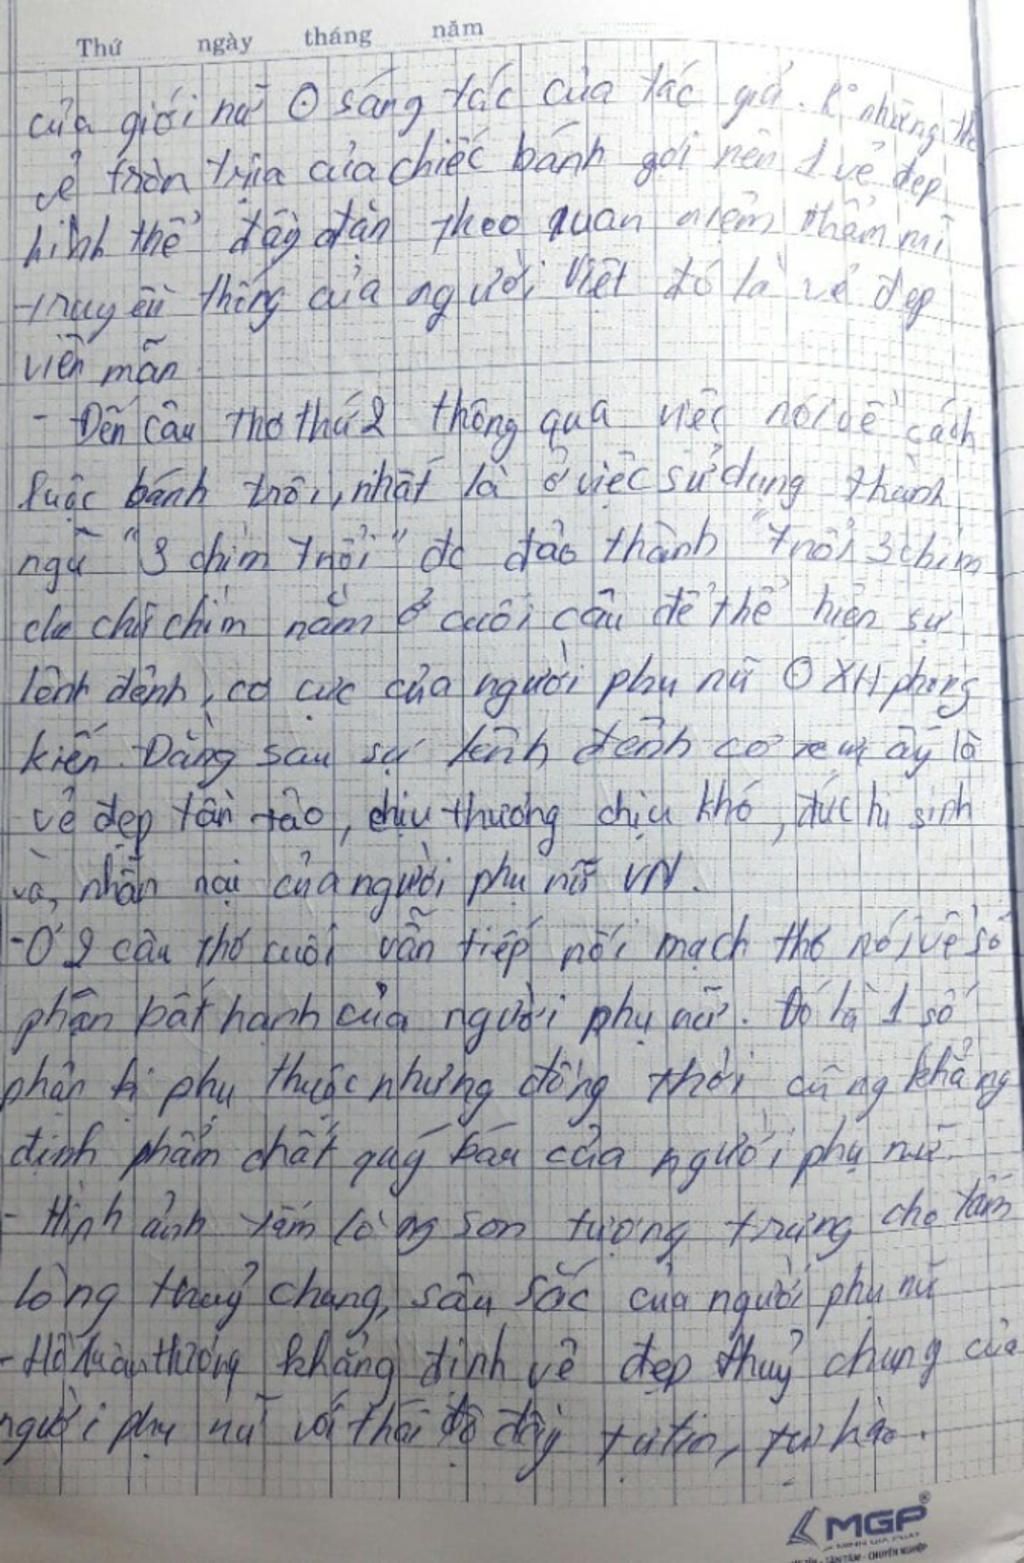 Thứ ngày tháng năm
của giới nữ ⊙ sáng tác của tác giả. K° những thế
vẻ tròn trịa của chiếc bánh gợi nên 1 vẻ đẹp
hình thể đầy đặn theo quan niệm thẩm mĩ
truyền thống của người Việt đó là vẻ đẹp
viên mãn
- Đến câu thơ thứ 2 thông qua việc nói về cách
luộc bánh trôi, nhất là ở việc sử dụng thành
ngữ "3 chìm 7 nổi" đc đảo thành "7 nổi 3 chìm
chữ chìm nằm ở cuối câu để thể hiện sự
lênh đênh, cơ cực của người phụ nữ ⊙ XH phong
kiến. Đằng sau sự lênh đênh cơ cực ấy là
vẻ đẹp tần tảo, chịu thương chịu khó, đức hi sinh
và, nhẫn nại của người phụ nữ VN.
- Ở 2 câu thơ cuối vẫn tiếp nối mạch thơ nói về số
phận bất hạnh của người phụ nữ. Đó là 1 số
phận bị phụ thuộc nhưng đồng thời cũng khẳng
định phẩm chất quý báu của người phụ nữ.
- Hình ảnh tấm lòng son tượng trưng cho tấm
lòng thuỷ chung, sâu sắc của người phụ nữ
- Hồ Xuân Hương khẳng định vẻ đẹp thuỷ chung của
người phụ nữ với thái độ đầy tự tin, tự hào.
MGP